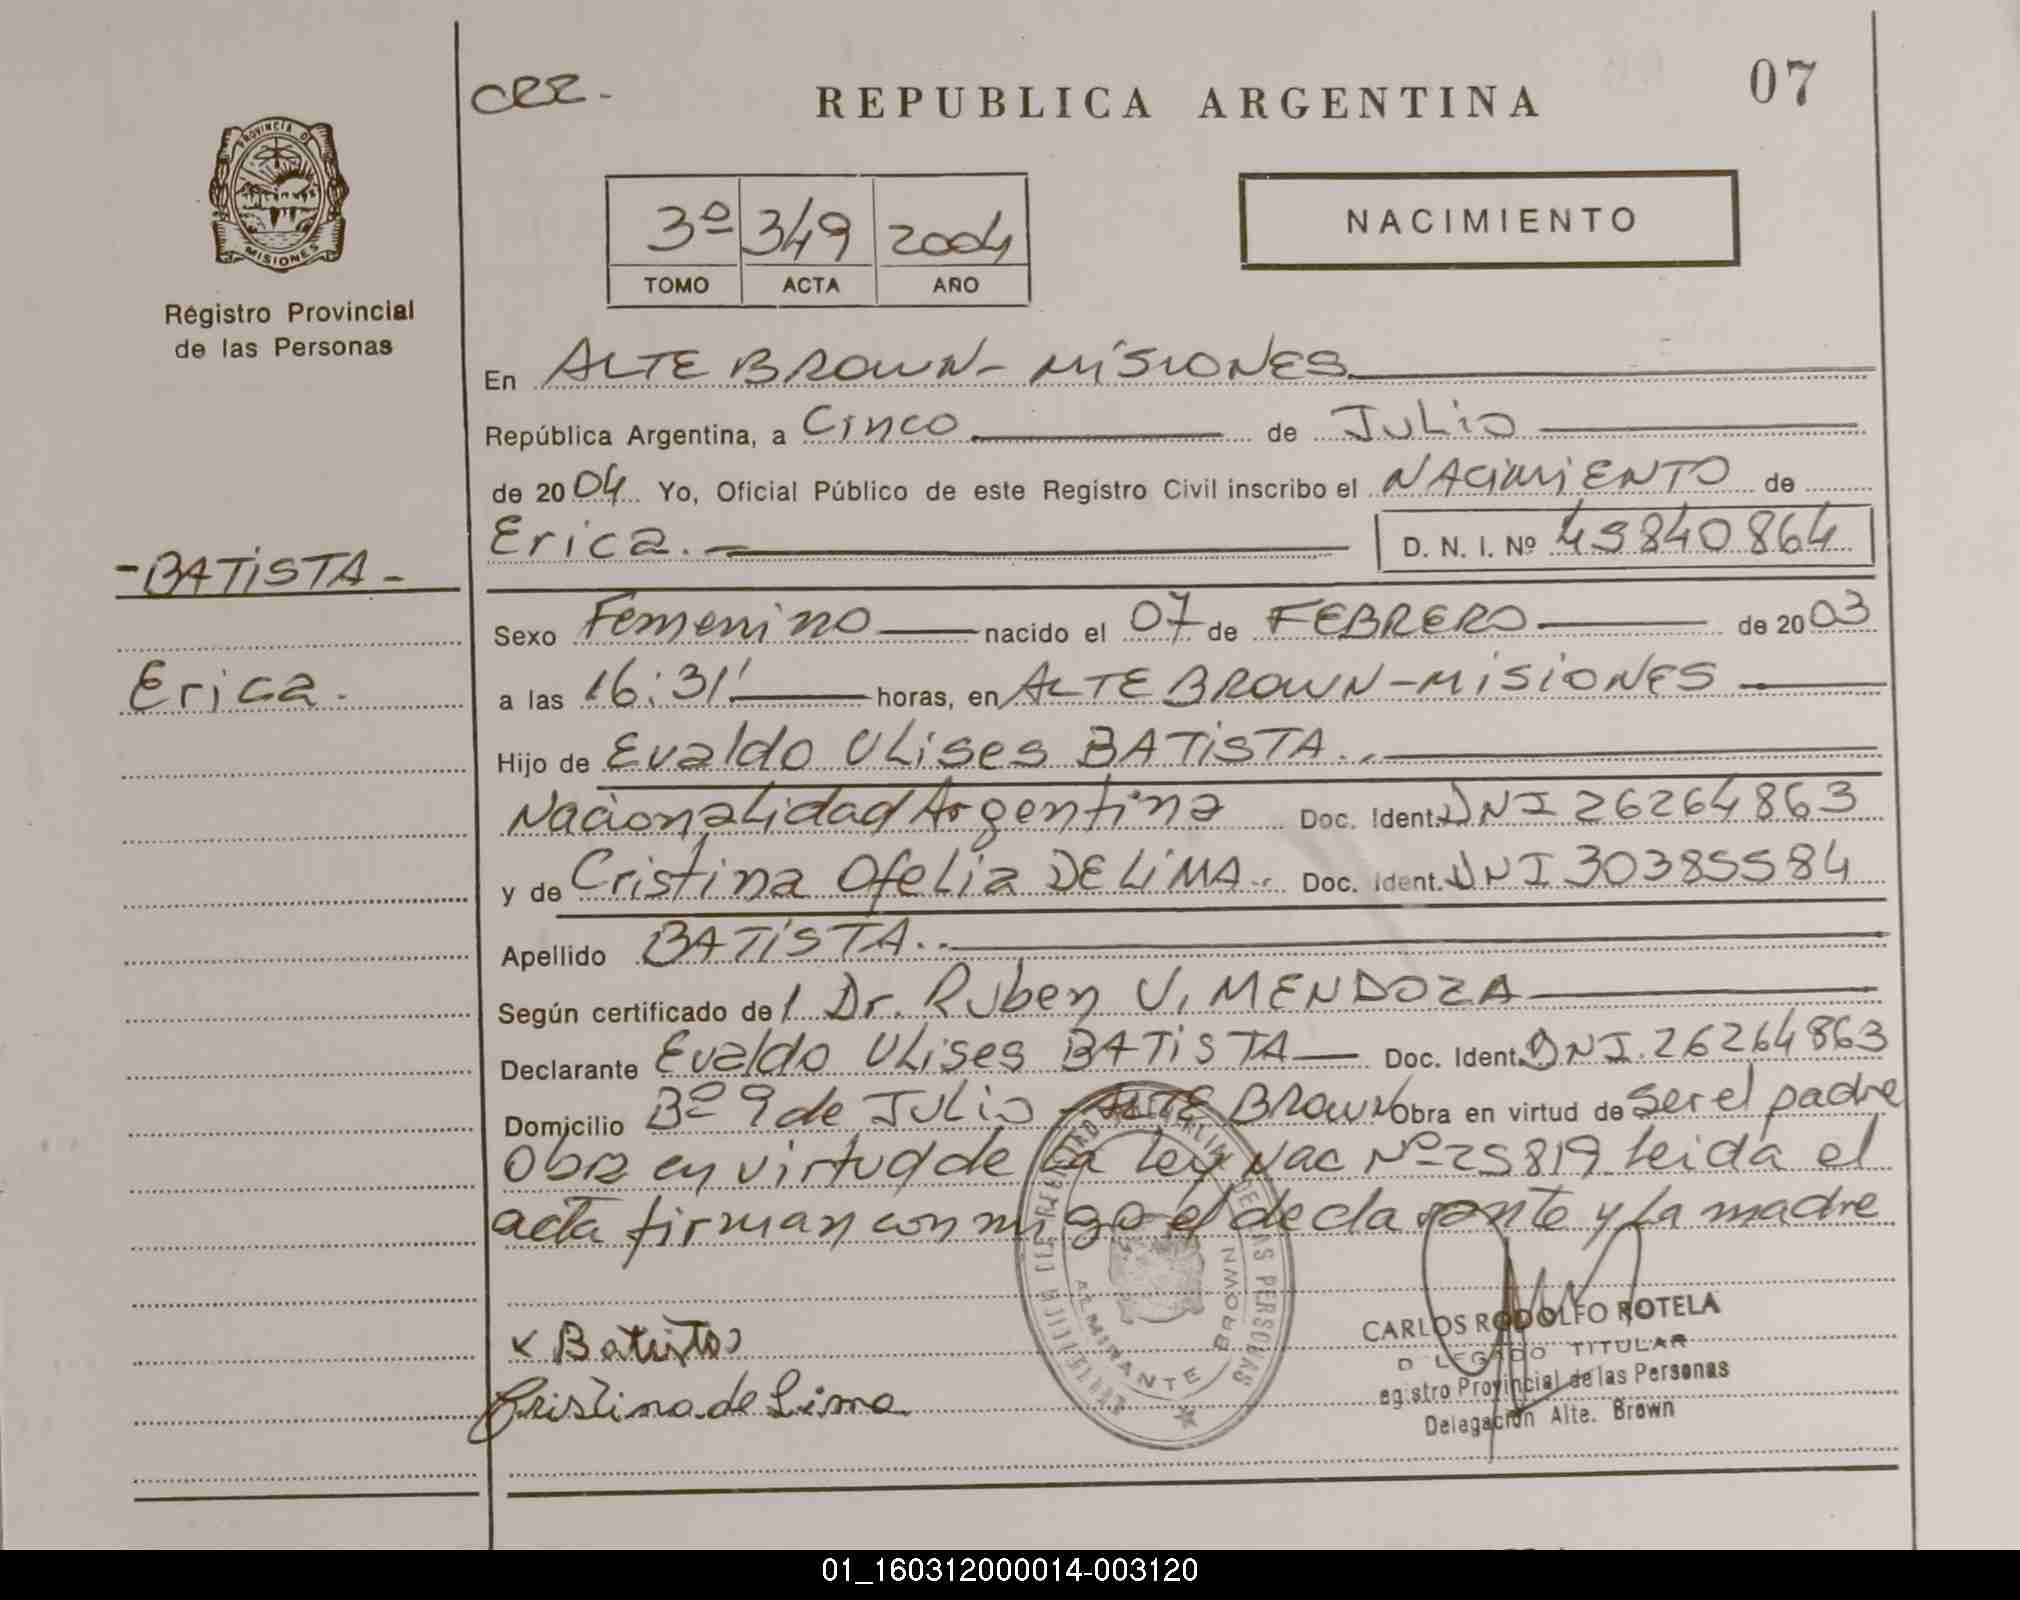 CRR.
REPUBLICA ARGENTINA
07
PROVINCIA DE
MISIONES
Registro Provincial
de las Personas
3º 349 2004
TOMO ACTA AÑO
NACIMIENTO
En ALTE BROWN - MISIONES
República Argentina, a Cinco de Julio
de 2004 Yo, Oficial Público de este Registro Civil inscribo el NACIMIENTO de
Erica. D. N. I. Nº 45840864
-BATISTA-
Erica.
Sexo Femenino nacido el 07 de FEBRERO de 2003
a las 16:31' horas, en ALTE BROWN-MISIONES
Hijo de Evaldo Ulises BATISTA..
Nacionalidad Argentina Doc. Ident. DNI 26264863
y de Cristina Ofelia DE LIMA.. Doc. Ident. DNI 30385584
Apellido BATISTA..
Según certificado de l Dr. Ruben V. MENDOZA
Declarante Evaldo Ulises BATISTA Doc. Ident. DNI. 26264863
Domicilio Bº 9 de Julio - ALTE BROWN Obra en virtud de ser el padre
Obra en virtud de la Ley Nac Nº 25819 leida el
acta firman conmigo el declarante y la madre
x Batista
Cristina de Lima
DE LAS PERSONAS
ALMIRANTE BROWN
CARLOS RODOLFO ROTELA
D LEGADO TITULAR
egistro Provincial de las Personas
Delegación Alte. Brown
01_160312000014-003120